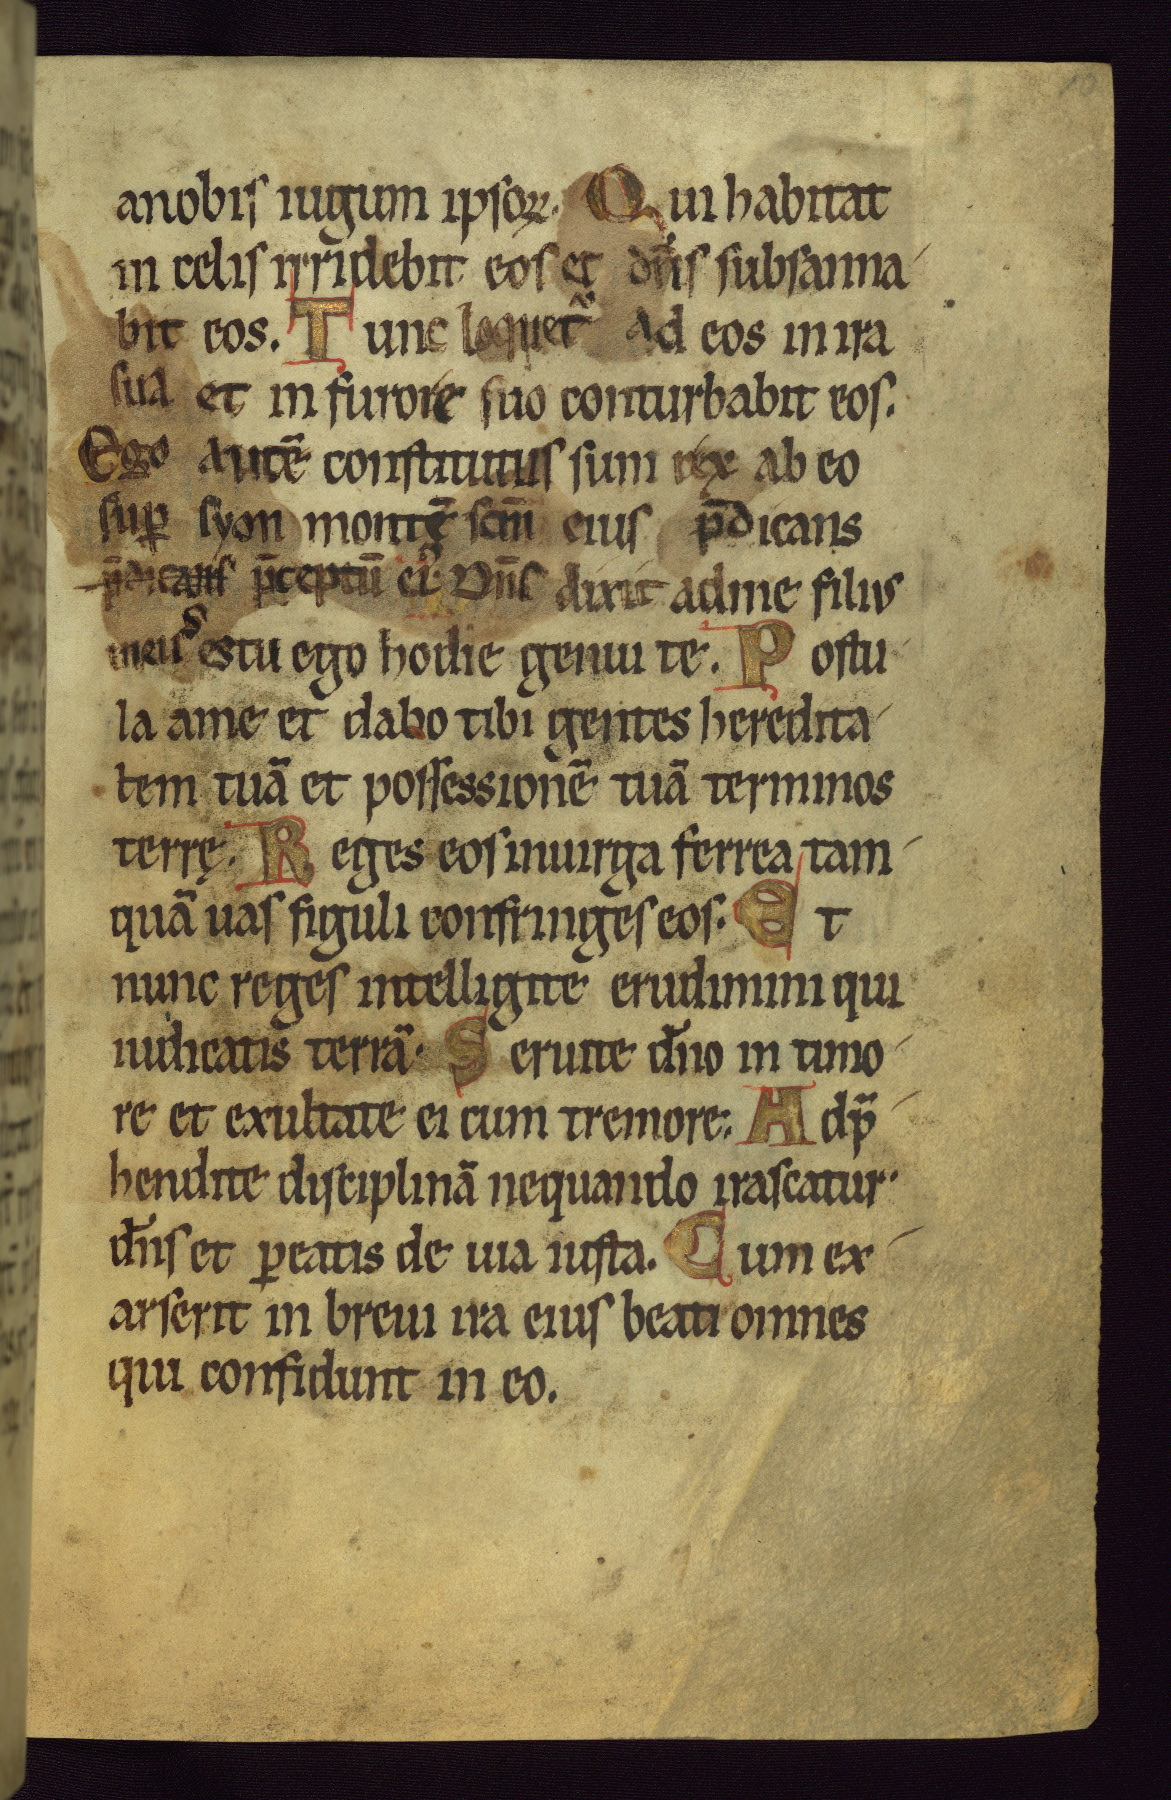 anobis iugum ipsoꝝ. Qui habitat
in celis irridebit eos et dn̄s subsanna
bit eos. Tunc loquet᷑ ad eos in ira
sua et in furore suo conturbabit eos.
Ego autē constitutus sum rex ab eo
suꝑ syon montē scm̄ eius p̄dicans
p̄dicans p̄ceptū ei᷒ Dn̄s dixit adme filius
meus estu ego hodie genui te. Postu
la ame et dabo tibi gentes heredita
tem tuā et possessionē tuā terminos
terrę. Reges eos inuirga ferrea tam
quā uas figuli confringes eos. Et
nunc reges intelligite erudimini qui
iudicatis terrā. Seruite dn̄o in timo
re et exultate ei cum tremore: Adp̄
hendite disciplinā nequando irascatur
dn̄s et ꝑeatis de uia iusta. Cum ex
arserit in breui ira eius beati omnes
qui confidunt in eo.